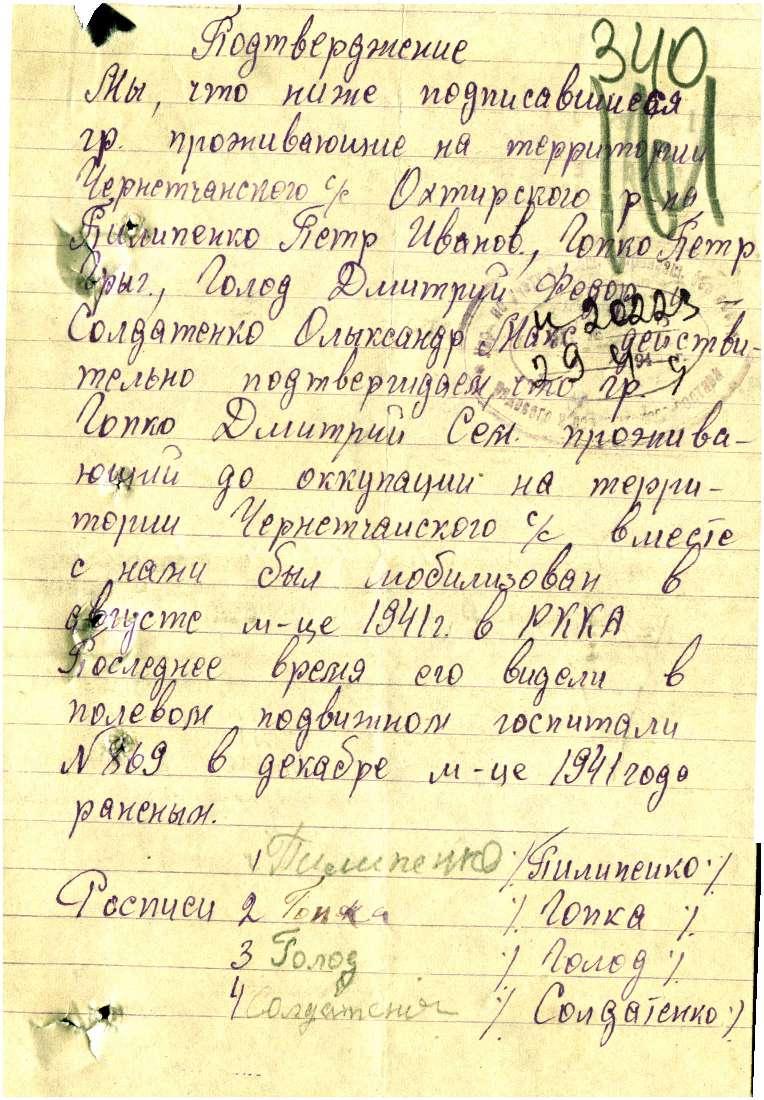 Подтверждение
340
Мы, что ниже подписавшиеся
161
гр. проживающие на территории
Чернетчанского с/с Охтирского р-на
Пилипенко Петр Иванов., Гопко Петр
Григ., Голод Дмитрий Федор.,
Солдатенко Олександр Макс. действи-
и 20223
тельно подтверждаем, что гр.
29
Гопко Дмитрий Сем. прожива-
ющий до оккупации на терри-
тории Чернетчанского с/с вместе
с нами был мобилизован в
августе м-це 1941г. в РККА
Последнее время его видели в
полевом подвижном госпитали
N 869 в декабре м-це 1941 года
раненым.
1 Пилипенко /Пилипенко/
Росписи 2 Гопка /Гопка/
3 Голод /Голод/
4 Солдатенко /Солдатенко/